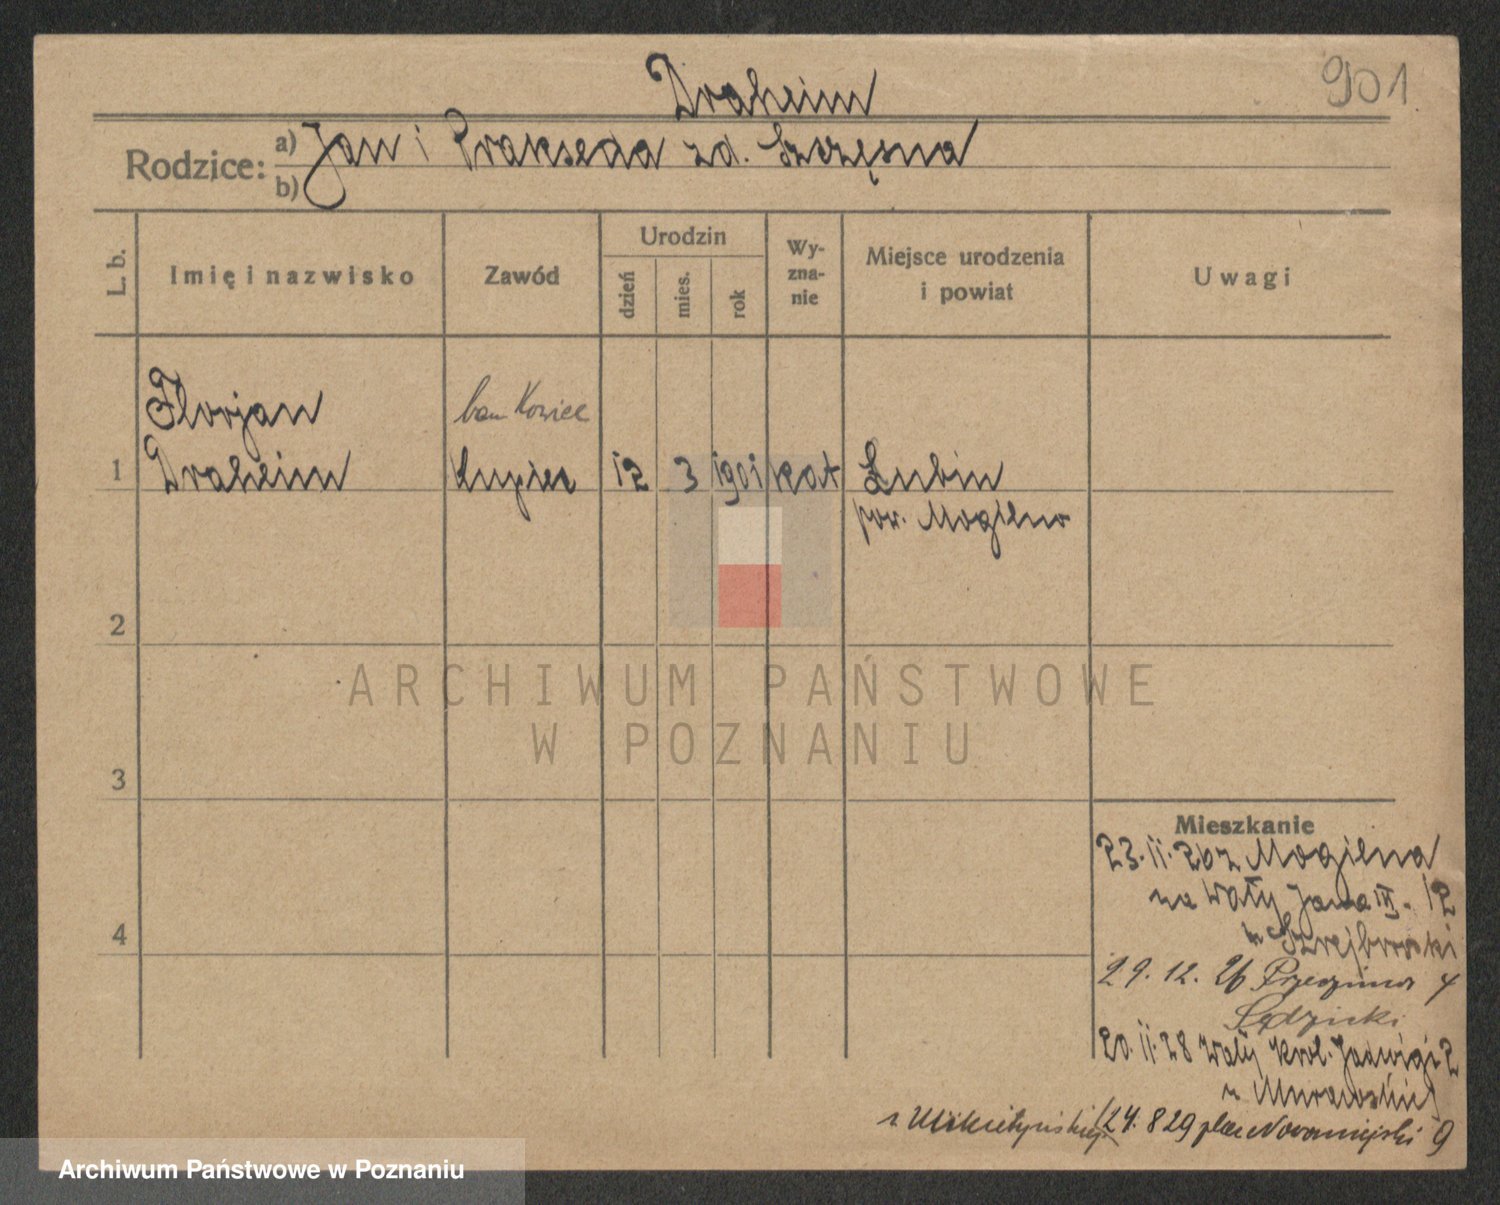 901
Draheim
Rodzice:
a) Jan i Prakseda zd. Szczęsna
b)
L. b.
Imię i nazwisko
Zawód
Urodzin
dzień
mies.
rok
Wy-
zna-
nie
Miejsce urodzenia
i powiat
Uwagi
Florjan
bankowiec
1 Draheim kupiec 12 3 1901 kat Lubin
pow. Mogilno
2
3
4
ARCHIWUM PAŃSTWOWE
W POZNANIU
Mieszkanie
23.11.26 z Mogilna
na Wały Jana III. 12
29. 12. 26 Przecznica 4
Sędzicki
20.11.28 Wały Król. Jadwigi 2
u Murawskiej
24. 8 29 plac Nowomiejski 9
Archiwum Państwowe w Poznaniu